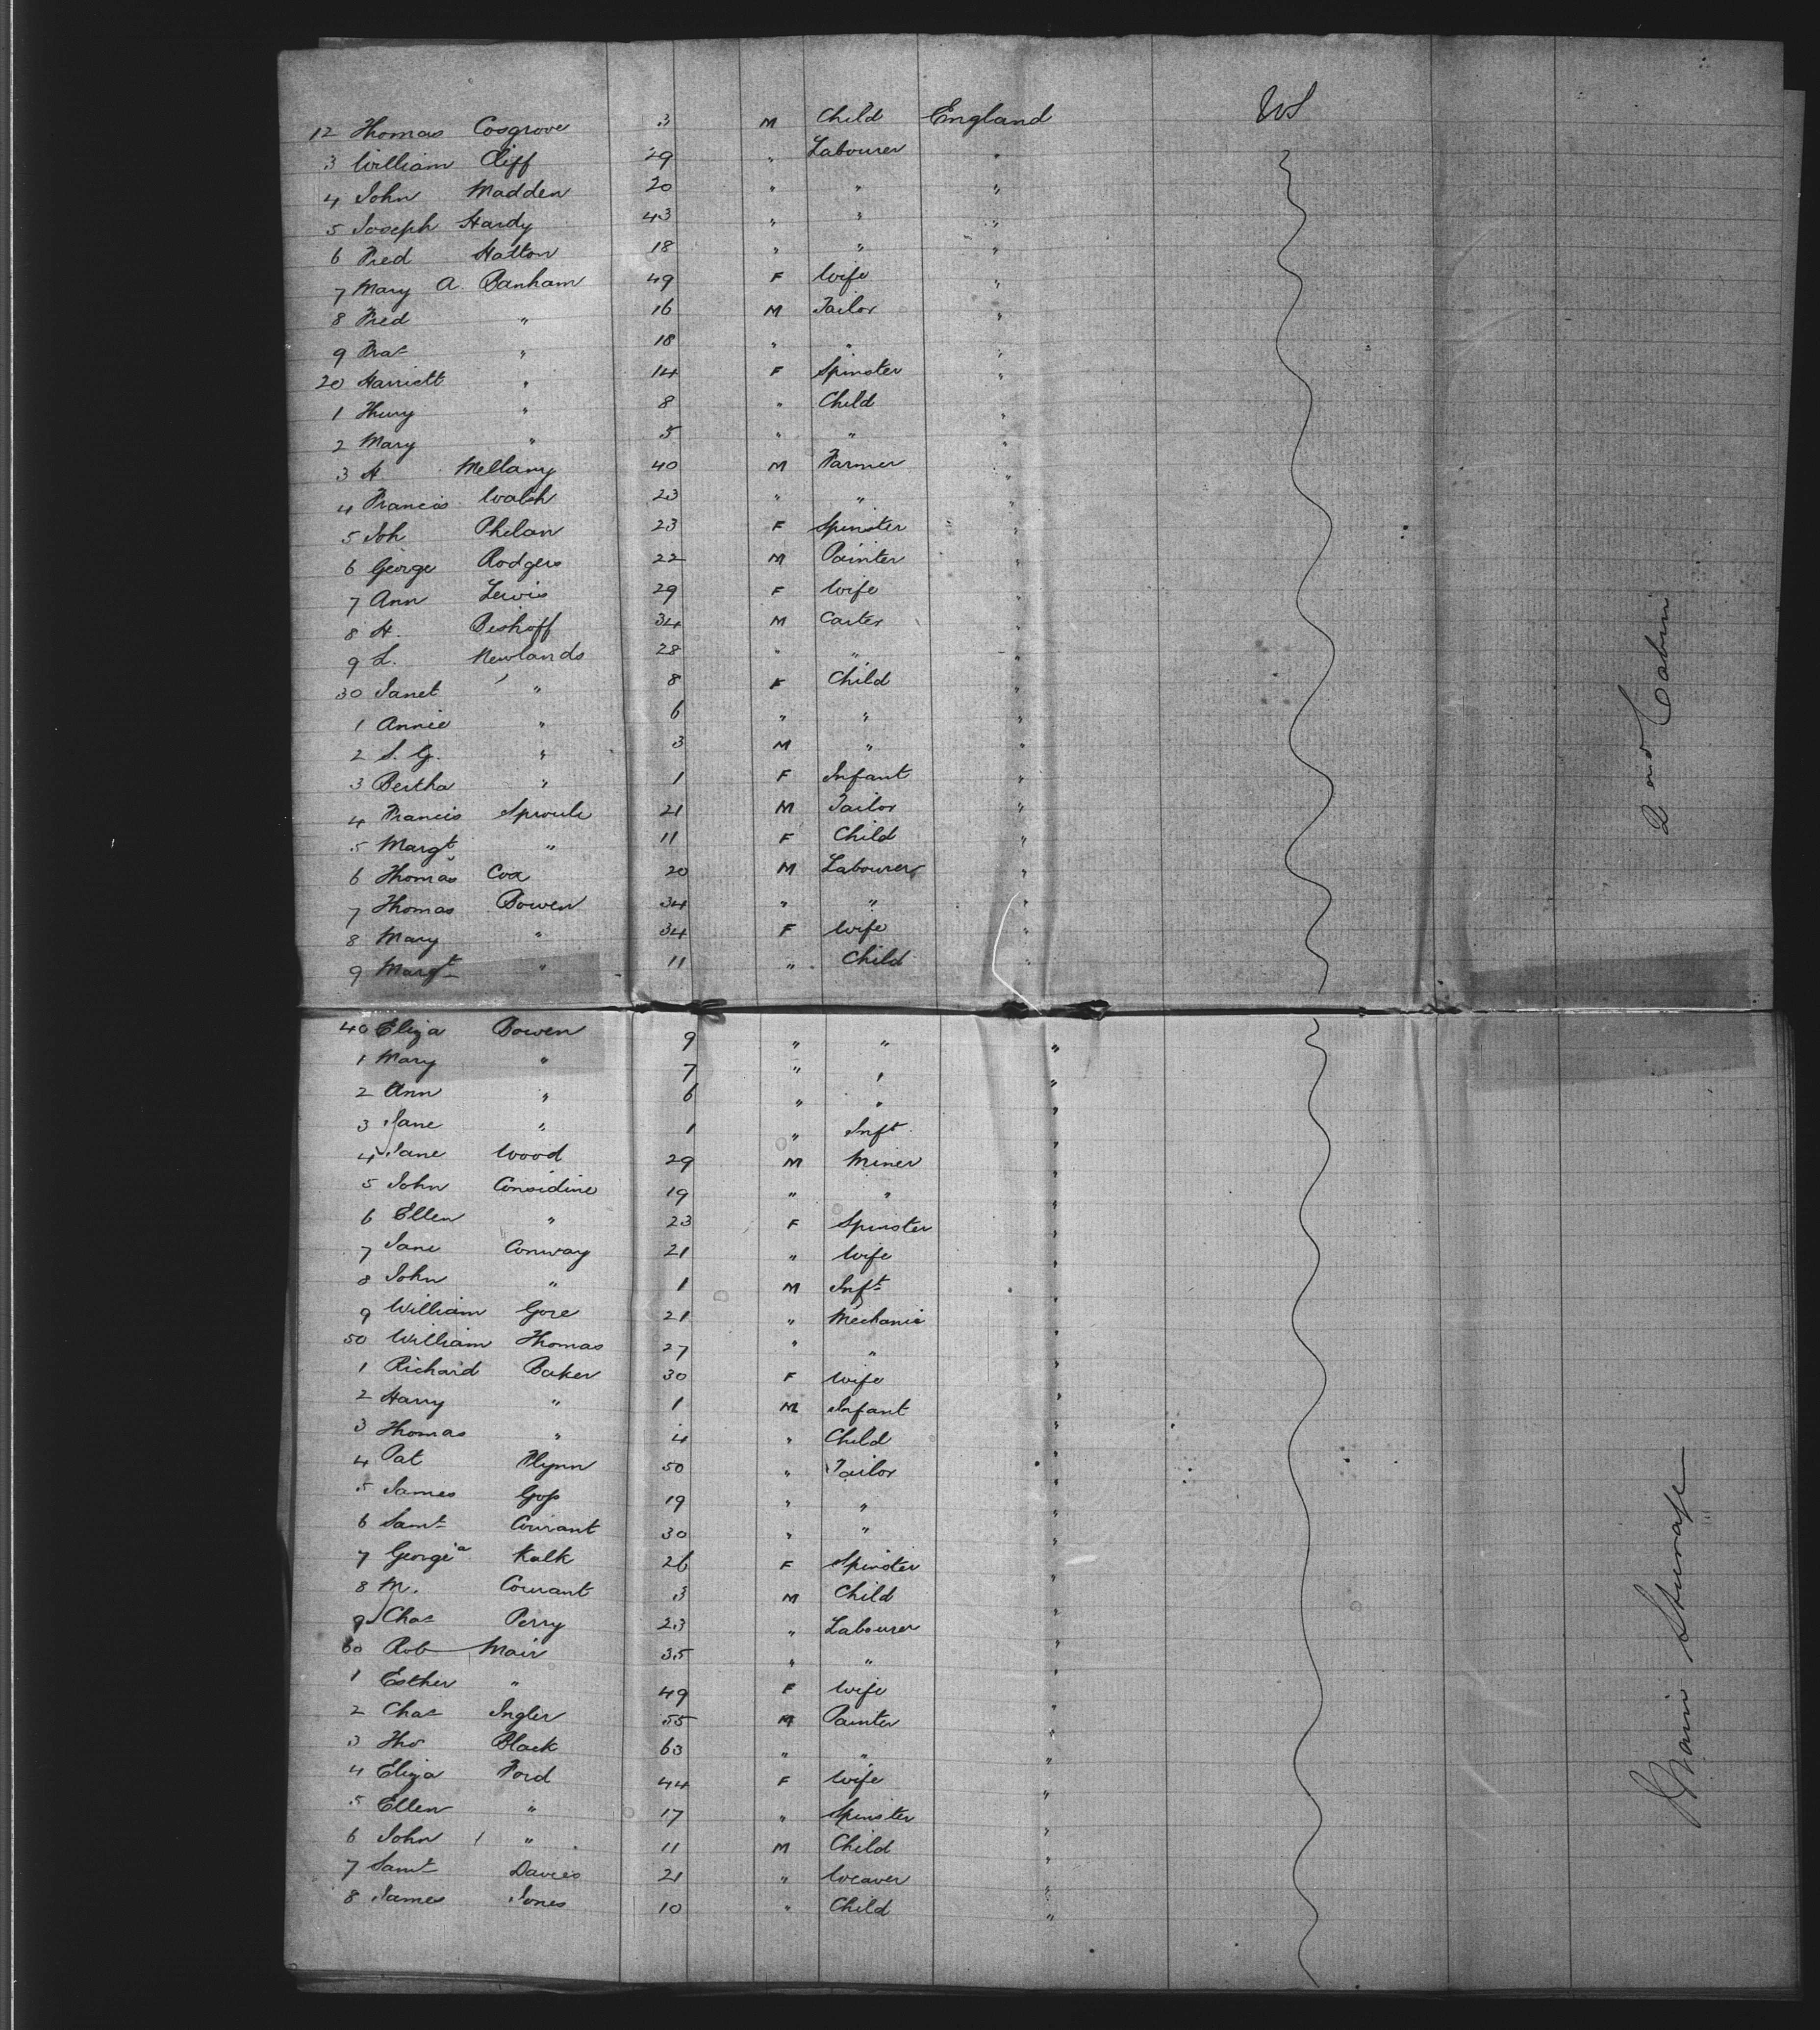 12 Thomas Cosgrove 3 M Child England US
3 William Cliff 29 " Labourer "
4 John Madden 20 " " "
5 Joseph Hardy 43 " " "
6 Fred Hatton 18 " " "
7 Mary A. Banham 49 F Wife "
8 Fred " 16 M Tailor "
9 " 18 " " "
20 Harriett " 14 F Spinster "
1 " 8 " Child "
2 Mary " 5 " " "
3 H. Mellany 40 M Farmer "
4 Francis Walsh 23 " " "
5 Joh Phelan 23 F Spinster "
6 George Rodgers 22 M Painter "
7 Ann Lewis 29 F Wife "
8 H. Bishoff 34 M Carter "
9 L. Newlands 28 " " "
30 Janet " 8 F Child "
1 Annie " 6 " " "
2 S. G. " 3 M " "
3 Bertha " 1 F Infant "
4 Francis Sproule 21 M Tailor "
5 Margt " 11 F Child "
6 Thomas Cox 20 M Labourer "
7 Thomas Bowen 34 " " "
8 Mary " 34 F Wife "
9 Margt " 11 " Child "
2nd Cabin
40 Eliza Bowen 9 " " "
1 Mary " 7 " " "
2 Ann " 6 " " "
3 Jane " 1 " Inft "
4 Jane Wood 29 M Miner "
5 John Considine 19 " " "
6 Ellen " 23 F Spinster "
7 Jane Conway 21 " Wife "
8 John " 1 M Inft "
9 William Gore 21 " Mechanic "
50 William Thomas 27 " " "
1 Richard Baker 30 F Wife "
2 Harry " 1 M Infant "
3 Thomas " 4 " Child "
4 Pat Flynn 50 " Tailor "
5 James Goss 19 " " "
6 Saml Courant 30 " " "
7 Georgia Kalk 26 F Spinster "
8 M. Courant 3 M Child "
9 Chas Perry 23 " Labourer "
60 Rob Mair 35 " " "
1 Esther " 49 F Wife "
2 Chas Ingler 55 M Painter "
3 Tho Black 63 " " "
4 Eliza Ford 44 F Wife "
5 Ellen " 17 " Spinster "
6 John " 11 M Child "
7 Saml Davies 21 " Weaver "
8 James Jones 10 " Child "
Main Steerage